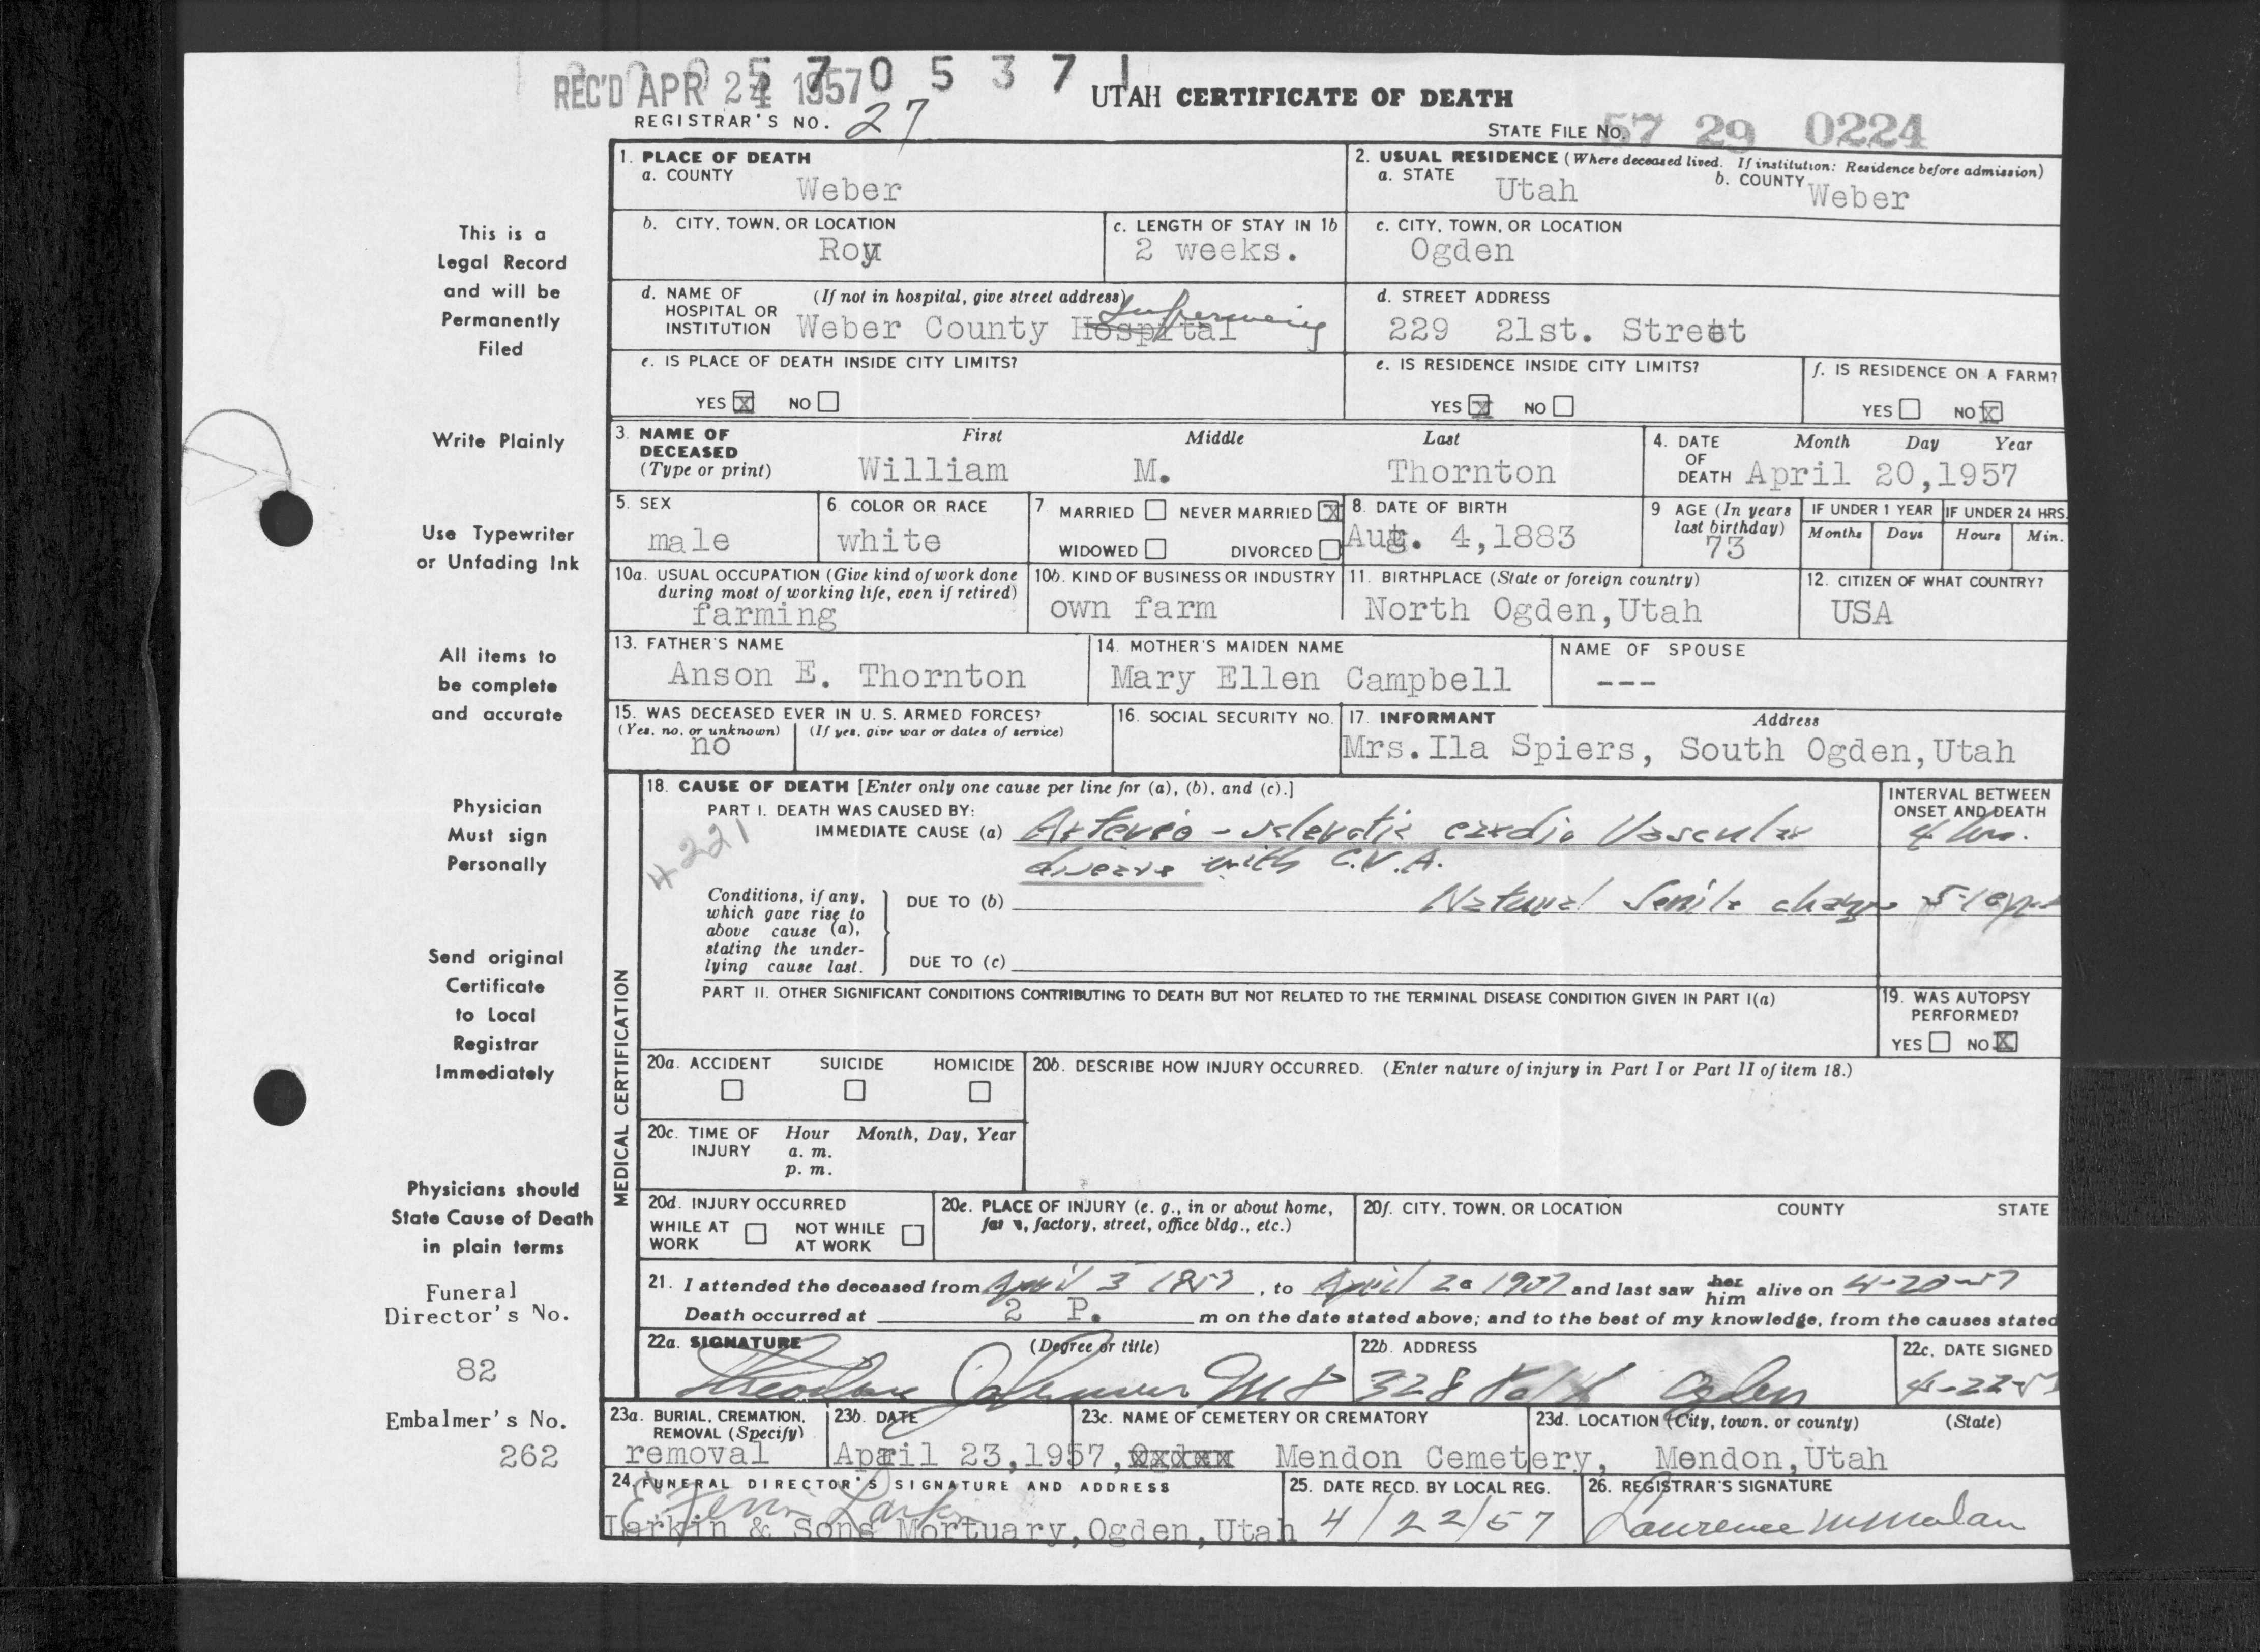 REC'D APR 24 1957
5705371
UTAH CERTIFICATE OF DEATH
REGISTRAR'S NO. 27
STATE FILE NO. 57 29 0224
This is a
Legal Record
and will be
Permanently
Filed
Write Plainly
Use Typewriter
or Unfading Ink
All items to
be complete
and accurate
Physician
Must sign
Personally
Send original
Certificate
to Local
Registrar
Immediately
Physicians should
State Cause of Death
in plain terms
Funeral
Director's No.
82
Embalmer's No.
262
1. PLACE OF DEATH
a. COUNTY
Weber
2. USUAL RESIDENCE (Where deceased lived. If institution: Residence before admission)
a. STATE Utah b. COUNTY Weber
b. CITY, TOWN, OR LOCATION
Roy
c. LENGTH OF STAY IN 1b
2 weeks.
c. CITY, TOWN, OR LOCATION
Ogden
d. NAME OF HOSPITAL OR INSTITUTION (If not in hospital, give street address)
Weber County Hospital
d. STREET ADDRESS
229 21st. Street
e. IS PLACE OF DEATH INSIDE CITY LIMITS?
YES X NO
e. IS RESIDENCE INSIDE CITY LIMITS?
YES X NO
f. IS RESIDENCE ON A FARM?
YES NO X
3. NAME OF DECEASED (Type or print)
First Middle Last
William M. Thornton
4. DATE OF DEATH Month Day Year
April 20,1957
5. SEX
male
6. COLOR OR RACE
white
7. MARRIED NEVER MARRIED X
WIDOWED DIVORCED
8. DATE OF BIRTH
Aug. 4,1883
9 AGE (In years last birthday)
73
IF UNDER 1 YEAR
Months Days
IF UNDER 24 HRS.
Hours Min.
10a. USUAL OCCUPATION (Give kind of work done during most of working life, even if retired)
farming
10b. KIND OF BUSINESS OR INDUSTRY
own farm
11. BIRTHPLACE (State or foreign country)
North Ogden,Utah
12. CITIZEN OF WHAT COUNTRY?
USA
13. FATHER'S NAME
Anson E. Thornton
14. MOTHER'S MAIDEN NAME
Mary Ellen Campbell
NAME OF SPOUSE
---
15. WAS DECEASED EVER IN U. S. ARMED FORCES?
(Yes, no, or unknown) (If yes, give war or dates of service)
no
16. SOCIAL SECURITY NO.
17. INFORMANT Address
Mrs.Ila Spiers, South Ogden,Utah
MEDICAL CERTIFICATION
18. CAUSE OF DEATH [Enter only one cause per line for (a), (b), and (c).]
PART I. DEATH WAS CAUSED BY:
IMMEDIATE CAUSE (a) Arterio-sclerotic cardio Vascular
disease with C.V.A.
4221
INTERVAL BETWEEN ONSET AND DEATH
Conditions, if any, which gave rise to above cause (a), stating the underlying cause last.
DUE TO (b) Natural Senile change
DUE TO (c)
PART II. OTHER SIGNIFICANT CONDITIONS CONTRIBUTING TO DEATH BUT NOT RELATED TO THE TERMINAL DISEASE CONDITION GIVEN IN PART I(a)
19. WAS AUTOPSY PERFORMED?
YES NO X
20a. ACCIDENT SUICIDE HOMICIDE
20b. DESCRIBE HOW INJURY OCCURRED. (Enter nature of injury in Part I or Part II of item 18.)
20c. TIME OF INJURY Hour Month, Day, Year
a. m.
p. m.
20d. INJURY OCCURRED
WHILE AT WORK NOT WHILE AT WORK
20e. PLACE OF INJURY (e. g., in or about home, farm, factory, street, office bldg., etc.)
20f. CITY, TOWN, OR LOCATION COUNTY STATE
21. I attended the deceased from April 3 1957, to April 20 1957 and last saw her him alive on 4-20-57
Death occurred at 2 P. m on the date stated above; and to the best of my knowledge, from the causes stated
22a. SIGNATURE (Degree or title)
22b. ADDRESS
Ogden
22c. DATE SIGNED
4-22-57
23a. BURIAL, CREMATION, REMOVAL (Specify)
removal
23b. DATE
April 23,1957,
23c. NAME OF CEMETERY OR CREMATORY
Mendon Cemetery,
23d. LOCATION (City, town, or county) (State)
Mendon,Utah
24. FUNERAL DIRECTOR'S SIGNATURE AND ADDRESS
Larkin & Sons Mortuary,Ogden,Utah
25. DATE RECD. BY LOCAL REG.
4/22/57
26. REGISTRAR'S SIGNATURE
Laurence M Malan